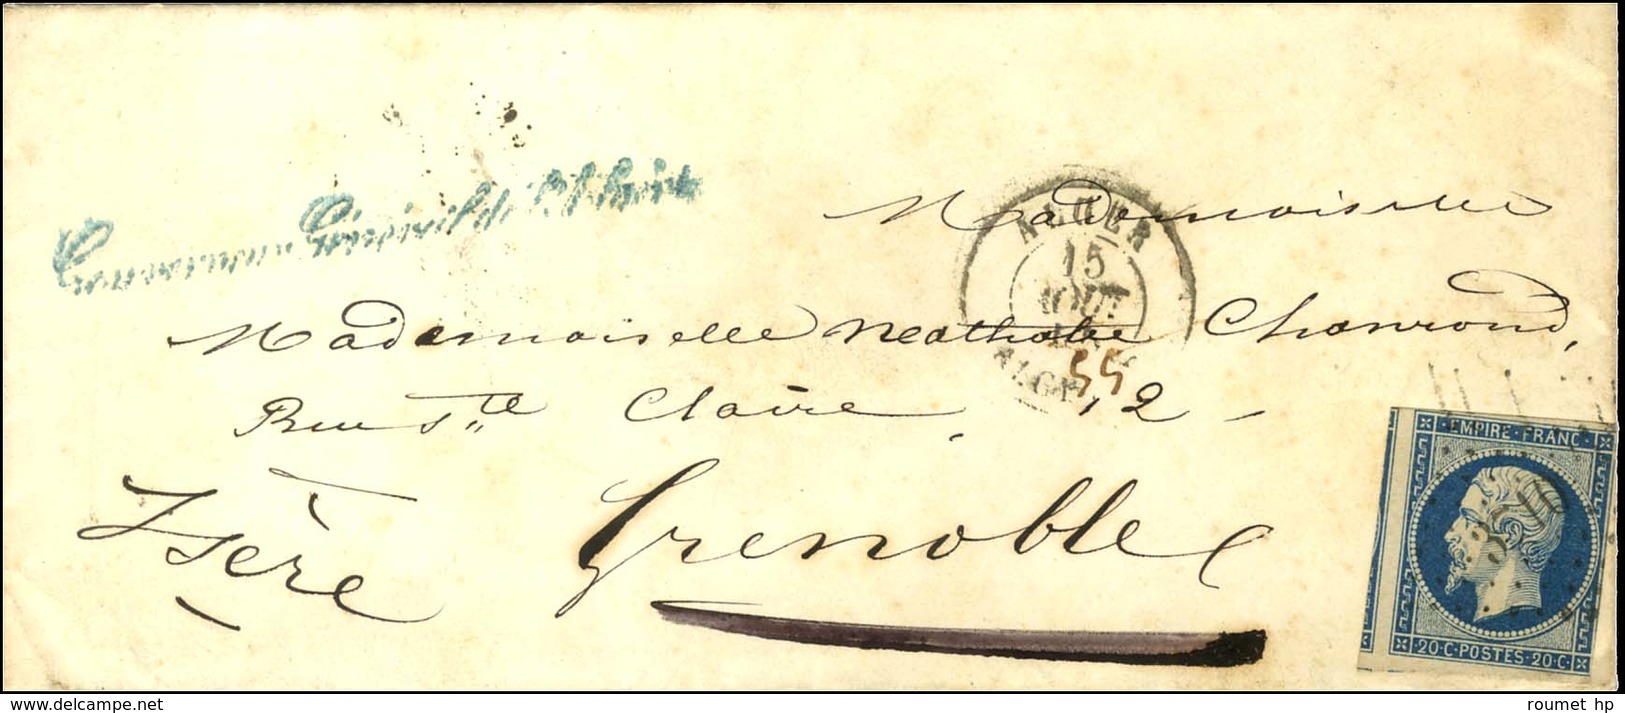 Gouvernement Général de l'Algérie
Mademoiselle
ALGER
15
AOUT
55
Mademoiselle Nathalie Chanrond,
Rue Ste Claire, 12
Isère Grenoble
EMPIRE·FRANC·
20·C·POSTES·20·C·
delcampe.net
roumet hp